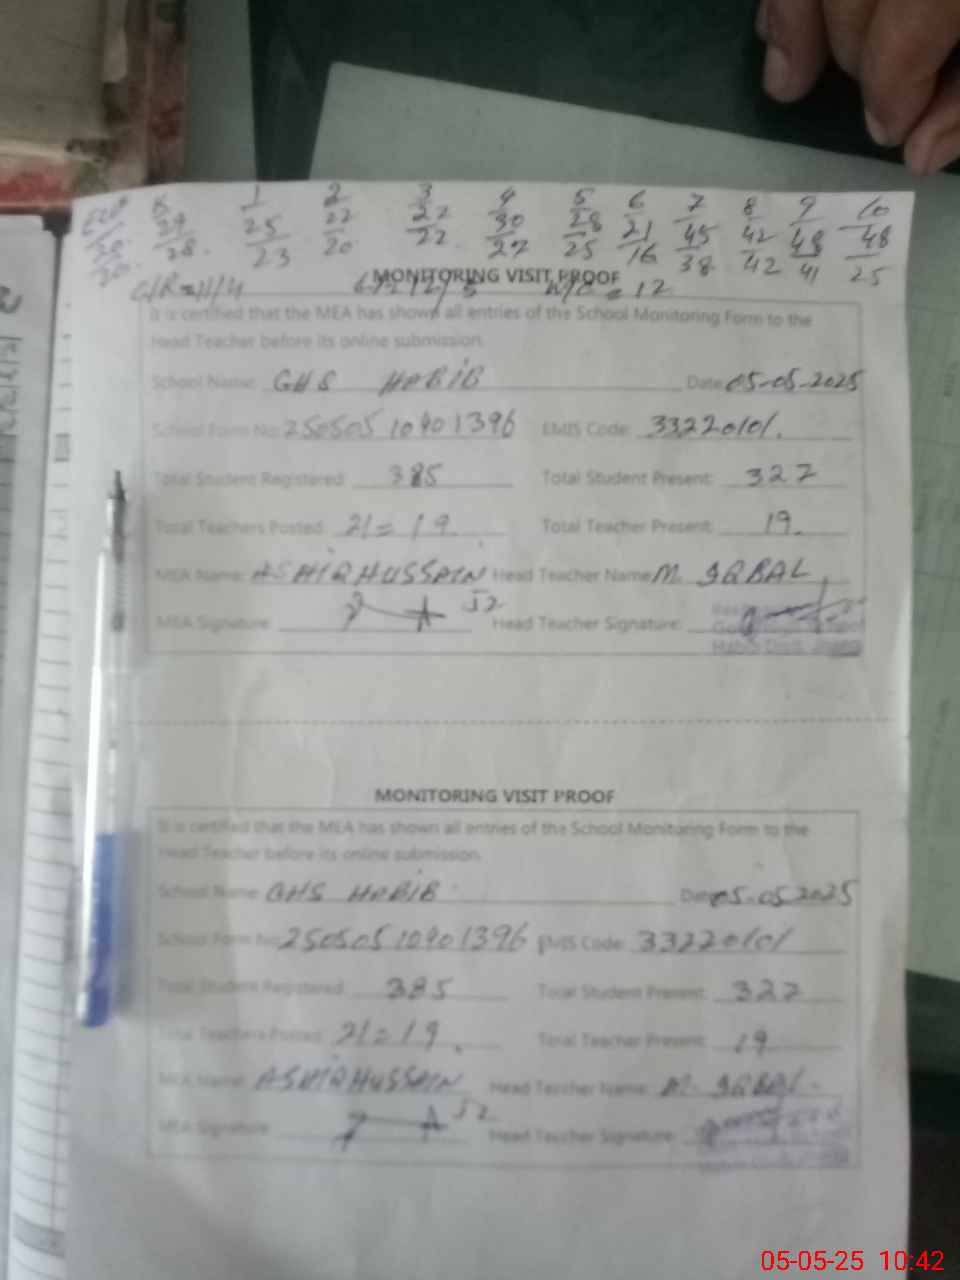 K 1 2 3 4 5 6 7 8 9 10
29 25 22 22 30 28 21 45 42 48 48
28 23 20 22 27 25 16 38 42 41 25
MONITORING VISIT PROOF
It is certified that the MEA has shown all entries of the School Monitoring Form to the
Head Teacher before its online submission.
School Name: GHS HABIB Date: 05-05-2025
School Form No: 25050510401396 EMIS Code: 33220101.
Total Student Registered: 385 Total Student Present: 327
Total Teachers Posted: 21=19. Total Teacher Present: 19.
MEA Name: ASHIQ HUSSAIN Head Teacher Name: M. IQBAL
MEA Signature: J2 Head Teacher Signature:
MONITORING VISIT PROOF
It is certified that the MEA has shown all entries of the School Monitoring Form to the
Head Teacher before its online submission.
School Name: GHS HABIB Date: 05-05 2025
School Form No: 25050510401396 EMIS Code: 33220101
Total Student Registered: 385 Total Student Present: 327
Total Teachers Posted: 21=19. Total Teacher Present: 19
MEA Name: ASHIQ HUSSAIN Head Teacher Name: M. IQBAL.
MEA Signature: J2 Head Teacher Signature:
05-05-25 10:42